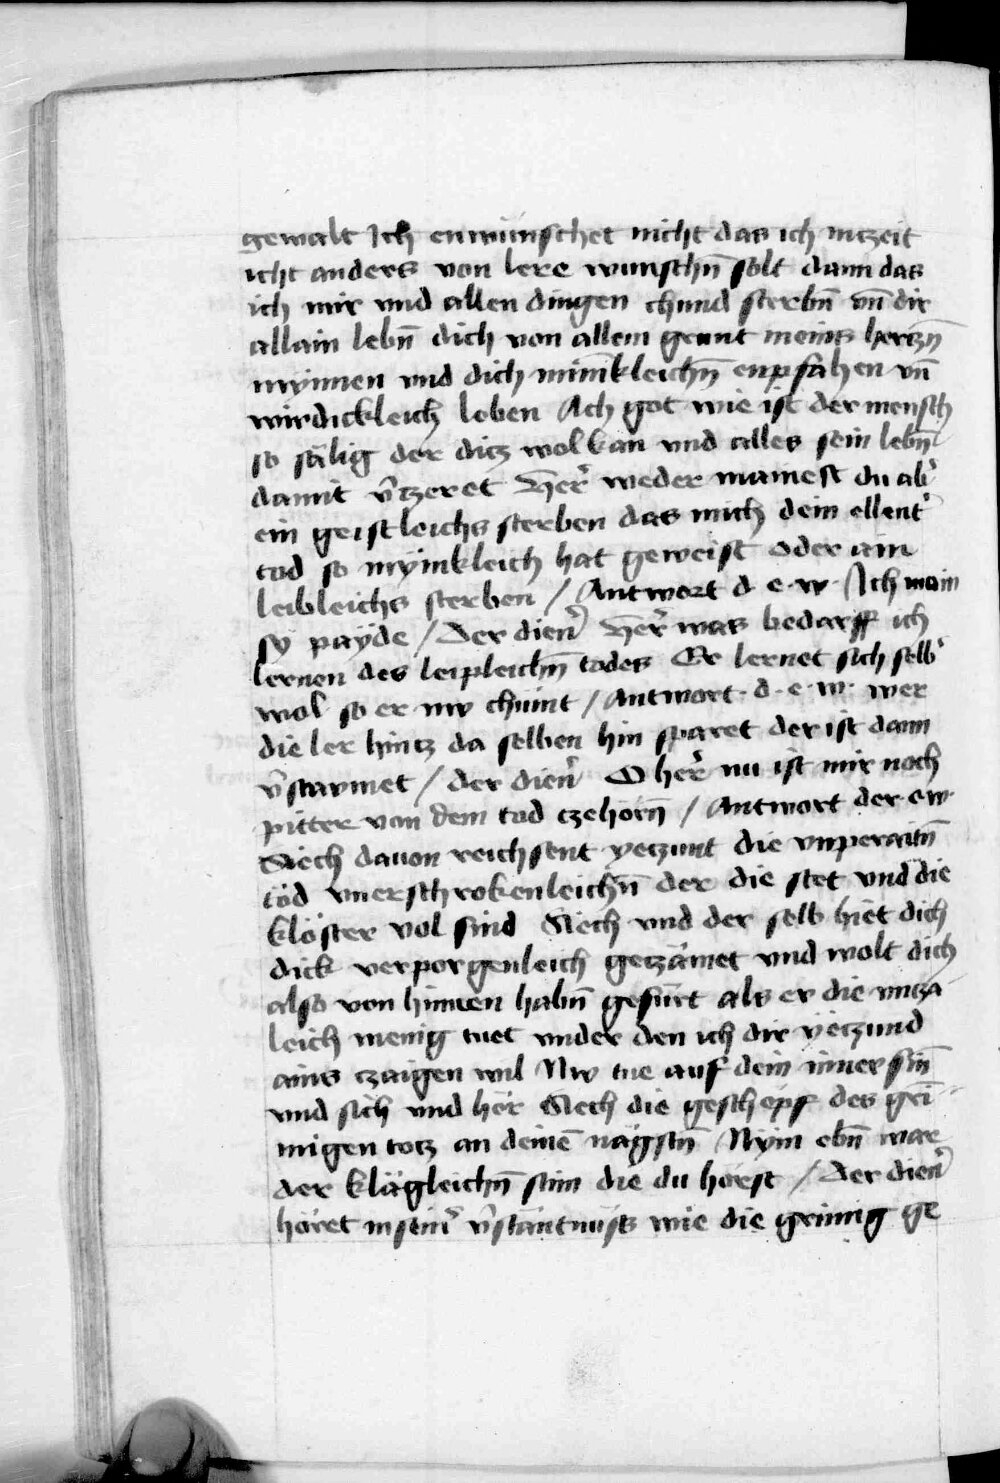 gewalt Ich enwünschet nicht das ich intzeit
icht anders von lere wunschn̄ solt dann das
ich mir vnd allen dingen chund sterbn̄ vn̄ dir
allain lebn̄ dich von allem grunt meins hertzn̄
mynnen vnd dich minīkleichn̄ enpfahen vn̄
wirdickleich loben Ach got wie ist der mensch
so sälig der ditz wol kan vnd alles sein lebn̄
damit v̄tzeret Her̄ weder mainest du ab̄
ein geistleichs sterben das mich dein ellent̄
tod so mynnkleich hat geweist oder ain
leibleichs sterben / Antwort d · e · w · Ich main
sy payde / Der dien̄ Her̄ was bedarff ich
lernen des leipleichn̄ todes Er lernet sich selb̄
wol so er nw chümt / Antwort · d · e · w · wer
die ler hintz da selben hin sparet der ist dann
v̄sawmet / der dien̄ O her̄ nu ist mir noch
pitter von dem tod czehorn̄ / Antwort der · e · w ·
Siech dauon reichsent yetzunt die vnperaitn̄
töd vnerschrokenleichn̄ der die stet vnd die
klöster vol sind Siech vnd der selb hiet dich
dick verporgenleich getzämet vnd wolt dich
also von hinnen habn̄ gefürt als er die vntza
leich menig tuet vnder den ich dir yetzund
ains tzaigen wil Nw tue auf dein inner sin̄
vnd sich vnd hör Siech die geschöpf des gri
migen totz an deinē nägstn̄ Nym ebn̄ war
der klägleichn̄ stim die du hörst / Der dien̄
höret in sein̄ v̄stäntnüss wie die grimig ge